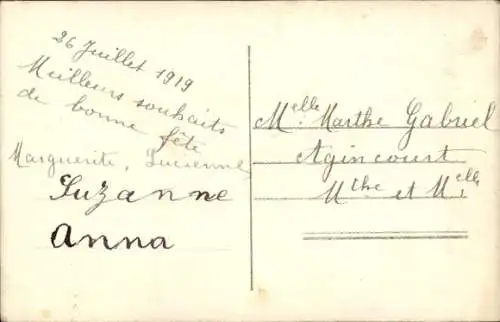 26 Juillet 1919
Meilleurs souhaits
de bonne fête
Marguerite, Lucienne
Suzanne
Anna
Melle Marthe Gabriel
Agincourt
Mthe et Mlle